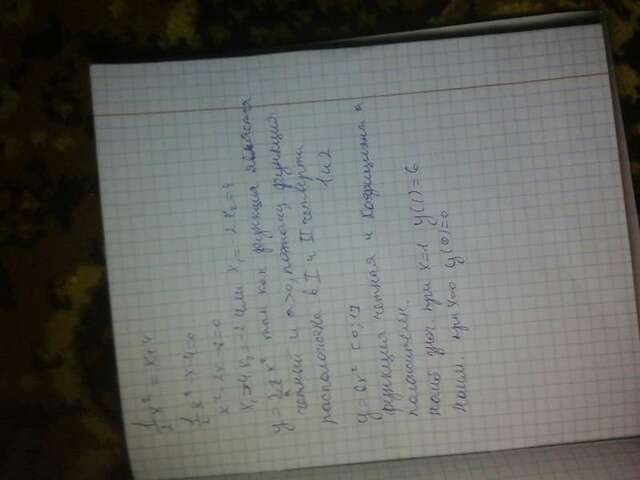 ½x² = x+4
½x² - x - 4 = 0
x² - 2x - 8 = 0
x₁ = 4 x₂ = -2 или x₁ = -2 x₂ = 4
y = x² так как функция является
чётный и a>0, потому функция
расположена в I и II четверти
1 и 2
y = 6x² [0; 1]
функция чётная и коэффициент а
положителен.
наиб знач при x=1 y(1)=6
наим. при x=0 y(0)=0